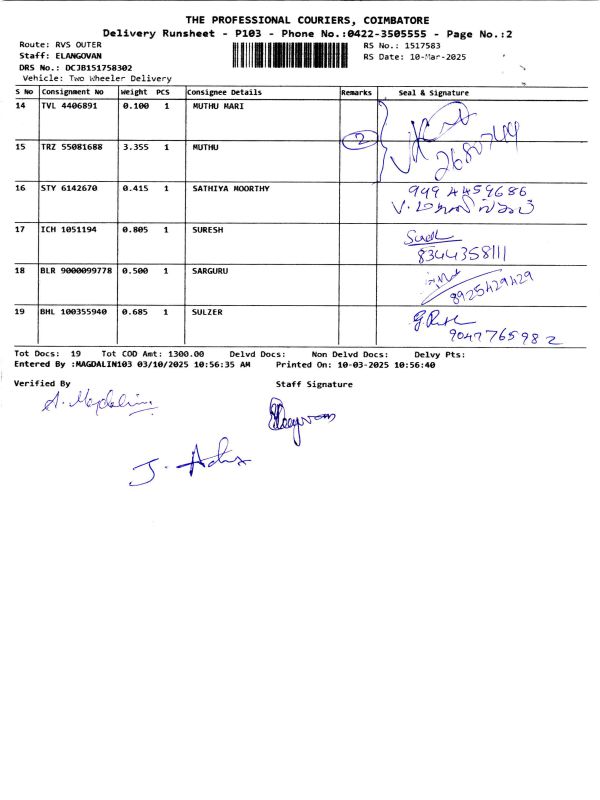 THE PROFESSIONAL COURIERS, COIMBATORE
Delivery Runsheet - P103 - Phone No.:0422-3505555 - Page No.:2
Route: RVS OUTER RS No.: 1517583
Staff: ELANGOVAN RS Date: 10-Mar-2025
DRS No.: DCJB151758302
Vehicle: Two Wheeler Delivery
S No Consignment No Weight PCS Consignee Details Remarks Seal & Signature
14 TVL 4406891 0.100 1 MUTHU MARI
15 TRZ 55081688 3.355 1 MUTHU 2
16 STY 6142670 0.415 1 SATHIYA MOORTHY 9994459686
17 ICH 1051194 0.805 1 SURESH
8344358111
18 BLR 9000099778 0.500 1 SARGURU
8925429429
19 BHL 100355940 0.685 1 SULZER
9047765982
Tot Docs: 19 Tot COD Amt: 1300.00 Delvd Docs: Non Delvd Docs: Delvy Pts:
Entered By :MAGDALIN103 03/10/2025 10:56:35 AM Printed On: 10-03-2025 10:56:40
Verified By Staff Signature